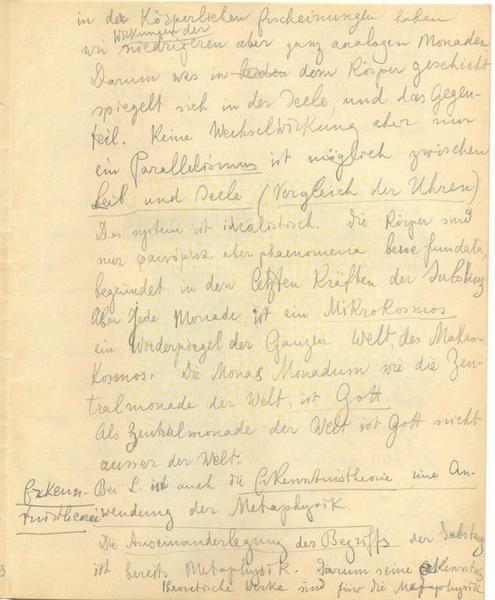 in der Körperlichen Erscheinungen haben
Wirkungen der
wir niedrigeren aber ganz analogen Monaden
Darum was in beiden dem Körper geschieht
spiegelt sich in der Seele, und das Gegen-
teil. Keine Wechselwirkung aber nur
ein Parallelismus ist möglich zwischen
Leib und Seele (Vergleich der Uhren)
Das system ist idealistisch. Die Körper sind
nur aber phaenomena bene fundata,
begründet in den letzten Kräften der Substanz
Aber jede Monade ist ein Mikrokosmos
ein Wiederspiegel der Ganzen Welt, des Makro-
kosmos. Die Monas Monadum wie die Zen-
tralmonade der Welt ist Gott.
Als Zentralmonade der Welt ist Gott nicht
ausser der Welt.
Erkenn-
tnistheorie
Bei L. ist auch die Erkenntnistheorie eine An-
wendung der Metaphysik.
Die Auseinanderlegung des Begriffs der Substanz
ist bereits Metaphysik. Darum seine erkenntnis
theoretische Werke sind für die Metaphysik